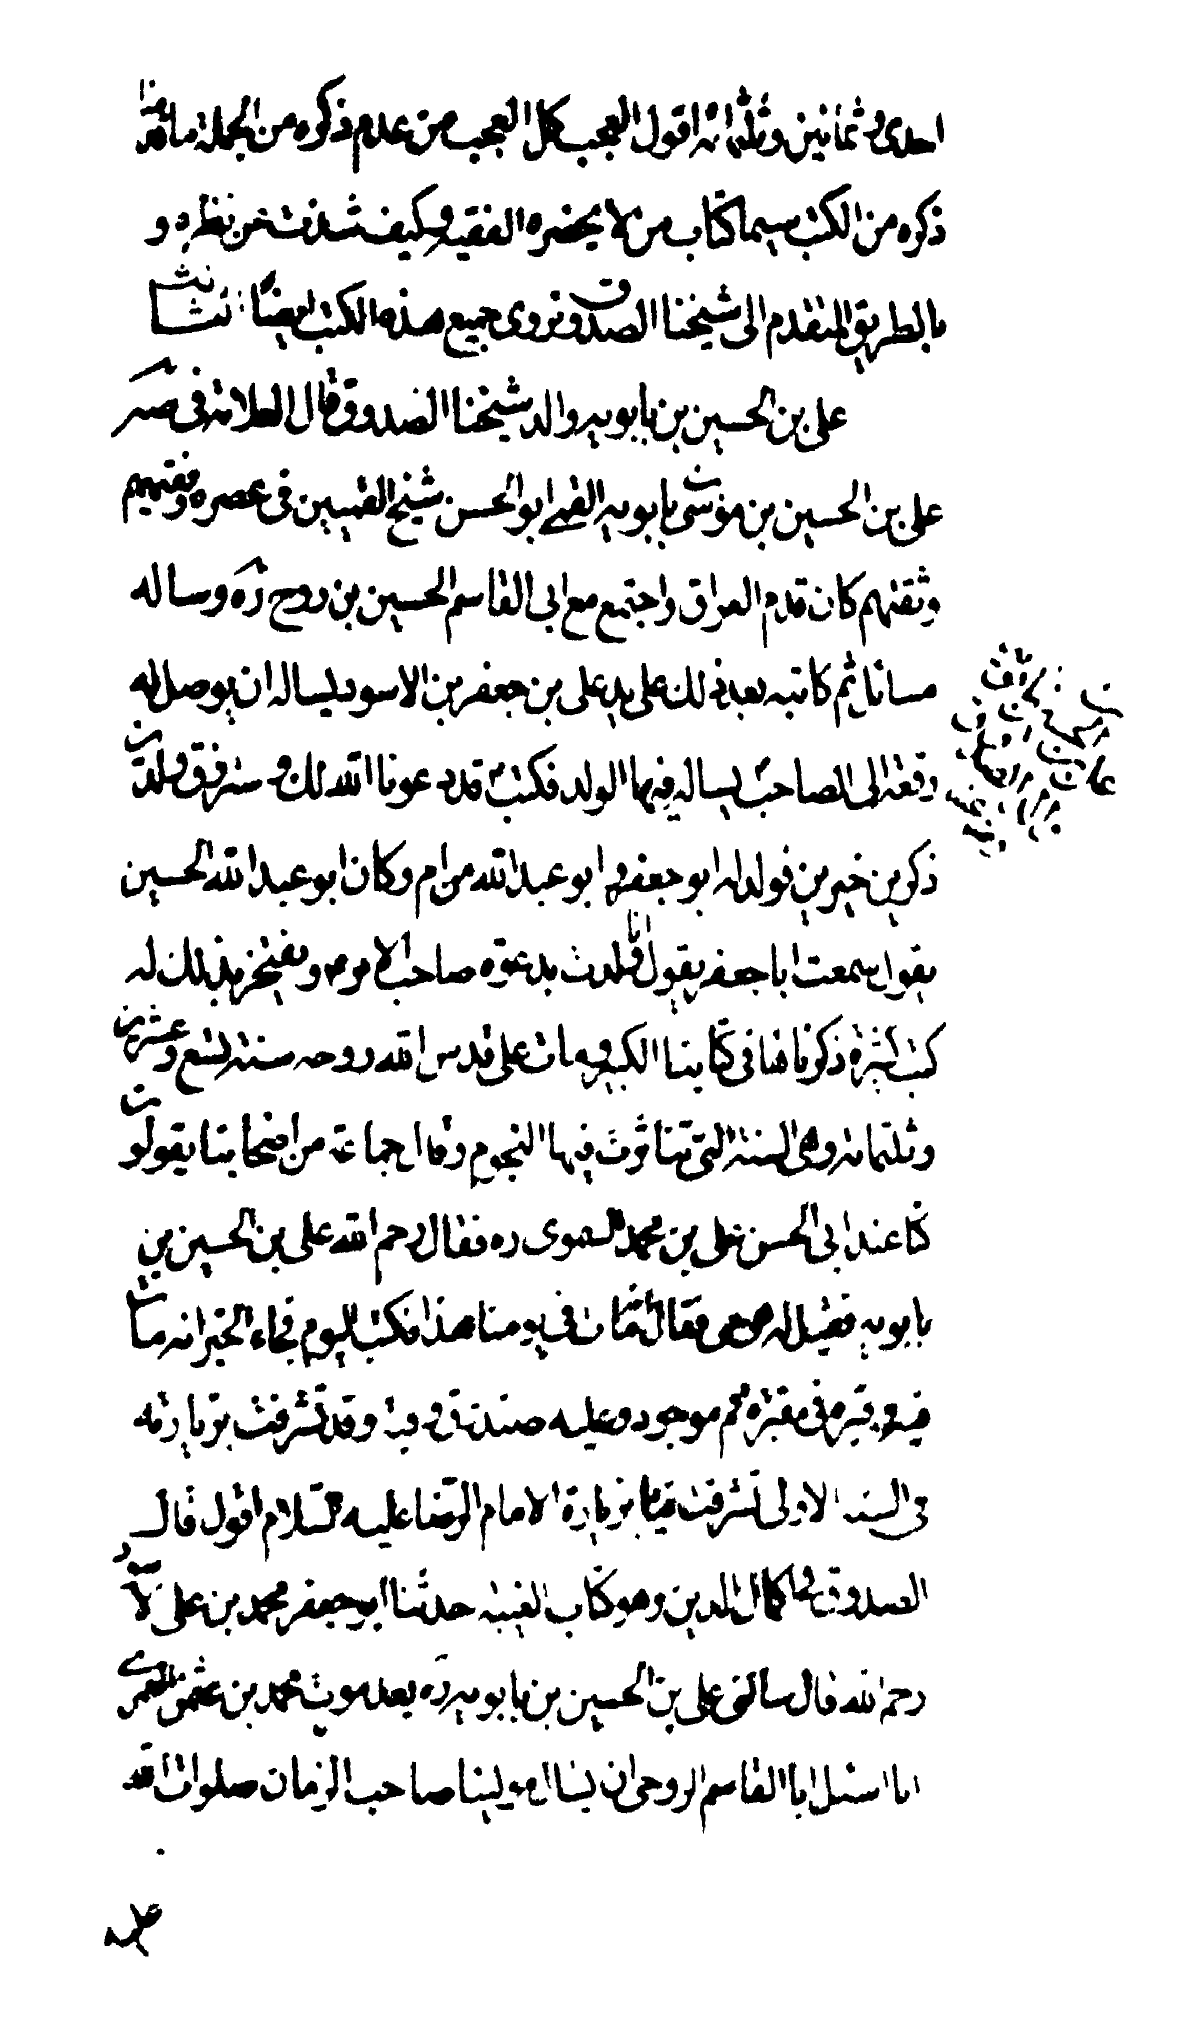 احدى وثمانين وثلثمائه اقول العجب كل العجب من عدم ذكره من الجملة ما تقدم
ذكره من الكتب سيما كتاب من لا يحضره الفقيه وكيف شذت عن نظره و
بالطريق المتقدم الى شيخنا الصدوق نروى جميع هذه الكتب ايضا
على بن الحسين بن بابويه والد شيخنا الصدوق قال العلامة فى صه
على بن الحسين بن موسى بن بابويه القمى ابو الحسن شيخ القميين فى عصره وفقيههم
وثقتهم كان قدم العراق واجتمع مع ابى القاسم الحسين بن روح ره وساله
مسائل ثم كاتبه بعد ذلك على يد على بن جعفر بن الاسود يساله ان يوصل له
رقعة الى الصاحب يساله فيها الولد فكتب قد دعونا الله لك و سترزق ولدين
ذكرين خيرين فولد له ابو جعفر و ابو عبد الله من ام وكان ابو عبد الله الحسين
يقول سمعت ابا جعفر يقول انا ولدت بدعوة صاحب الامر و يفتخر بذلك له
كتب كثيرة ذكرناها فى كتابنا الكبير و مات على قدس الله روحه سنة تسع وعشرين
وثلثمائه وهى السنة التى تناثرت فيها النجوم وقال جماعة من اصحابنا يقولون
كنا عند ابى الحسن على بن محمد السمرى ره فقال رحم الله على بن الحسين بن
بابويه فقيل له هو حى فقال مات فى يومنا هذا فكتب اليوم فجاء الخبر انه مات
فيه و قبره فى مقبرة قم موجود وعليه صندوق و قبة وقد تشرفت بزيارته
فى السنة الاولى تشرفت فيها بزيارة الامام الرضا عليه السلام اقول قال
الصدوق فى كمال الدين وهو كتاب الغيبة حدثنا ابو جعفر محمد بن على الاسود
رحمه الله قال سالنى على بن الحسين بن بابويه ره بعد موت محمد بن عثمن العمرى
ان اسئل ابا القاسم الروحى ان يسال مولينا صاحب الزمان صلوات الله
عليه